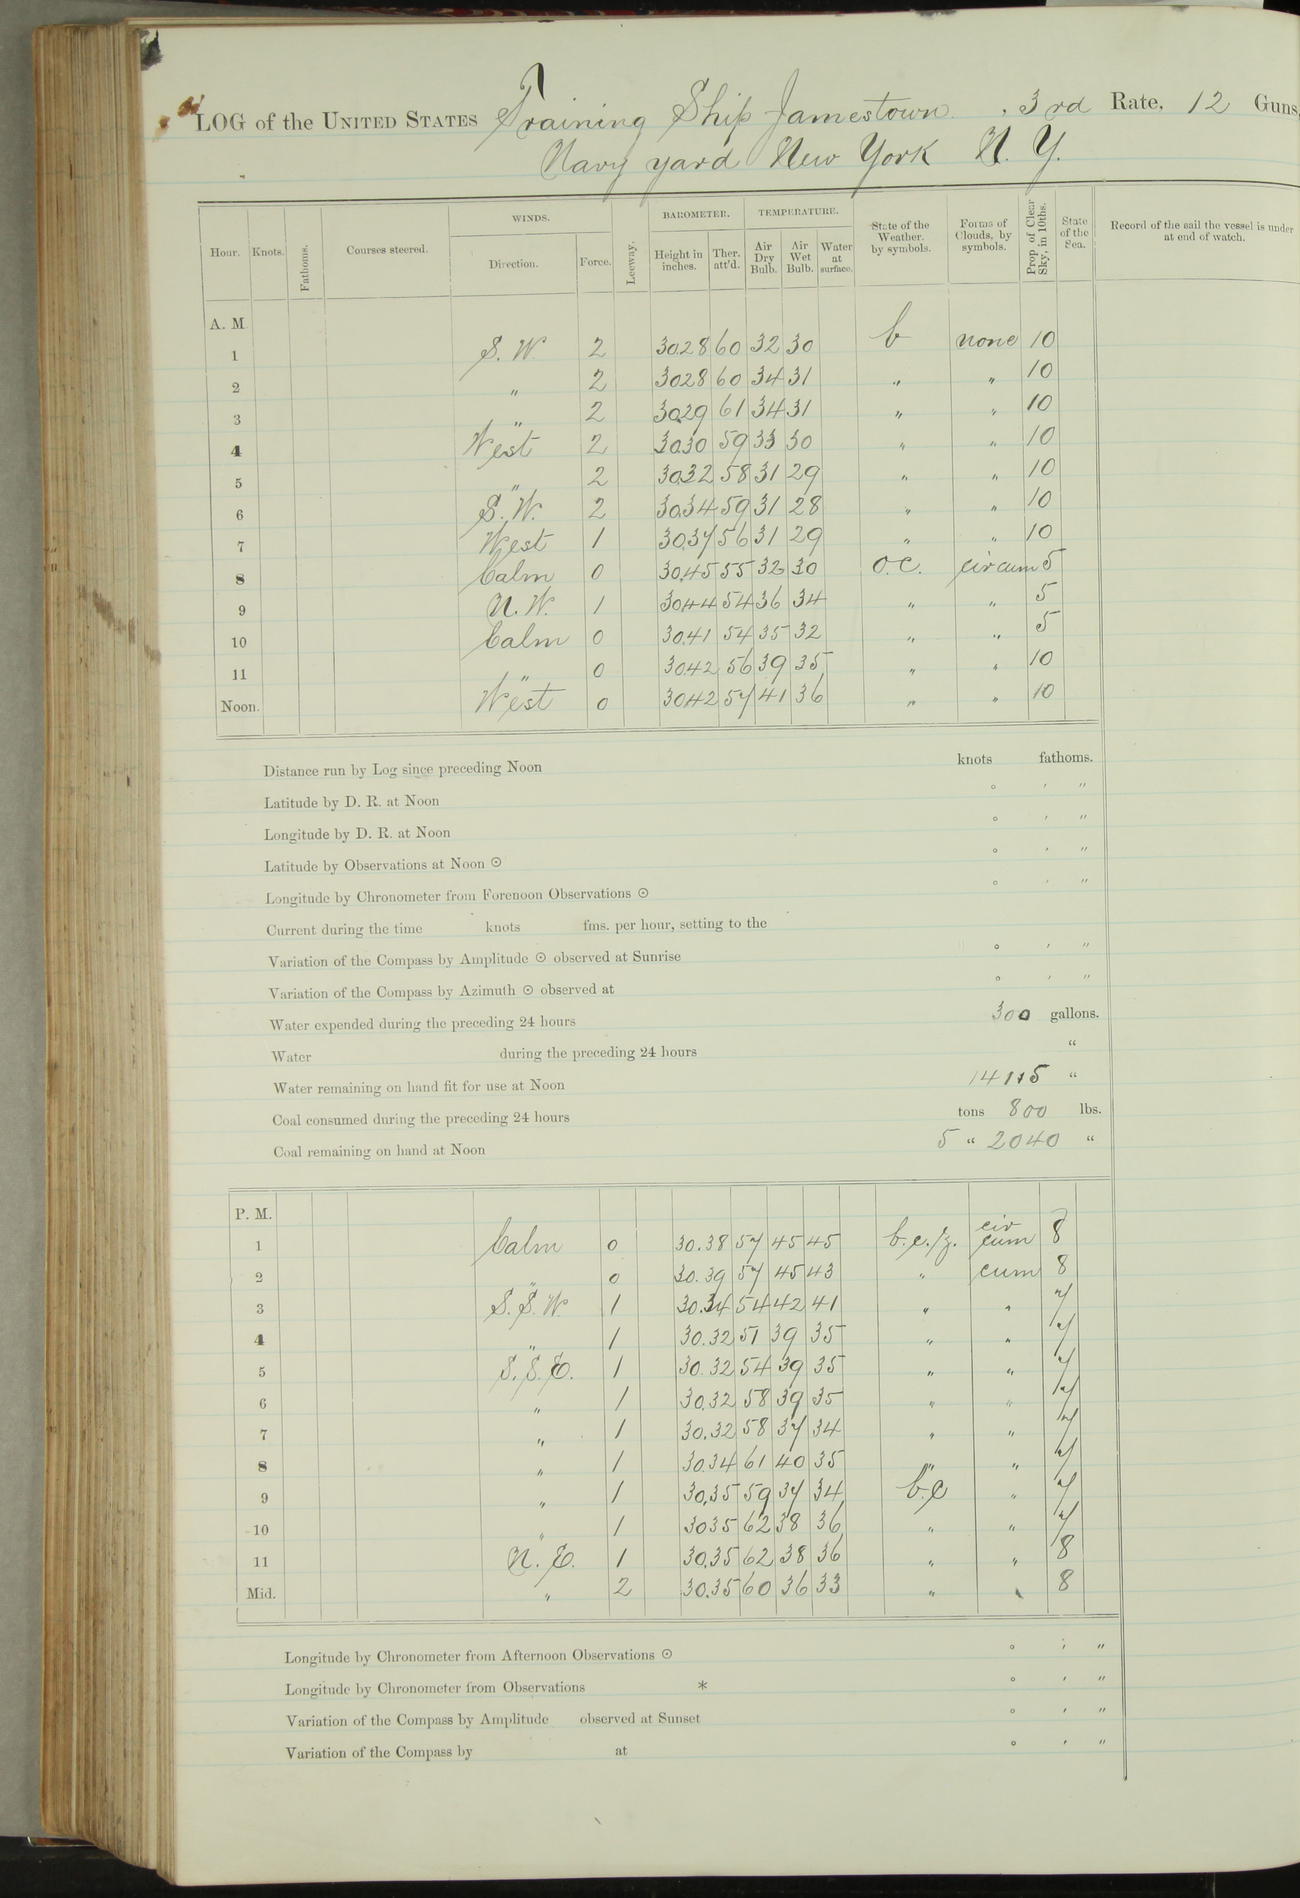 LOG of the UNITED STATES Training Ship Jamestown. , 3rd Rate, 12 Guns,
Navy yard New York N. Y.
Hour. Knots. Fathoms. Courses steered. WINDS. Direction. Force. Leeway. BAROMETER. Height in inches. Ther. att'd. TEMPERATURE. Air Dry Bulb. Air Wet Bulb. Water at surface. State of the Weather. by symbols. Forms of Clouds, by symbols. Prop. of Clear Sky, in 10ths. State of the Sea. Record of the sail the vessel is under at end of watch.
A. M.
1 S. W. 2 30.28 60 32 30 b none 10
2 " 2 30.28 60 34 31 " " 10
3 " 2 30.29 61 34 31 " " 10
4 West 2 30.30 59 33 30 " " 10
5 " 2 30.32 58 31 29 " " 10
6 S. W. 2 30.34 59 31 28 " " 10
7 West 1 30.37 56 31 29 " " 10
8 Calm 0 30.45 55 32 30 o.c. cir cum 5
9 N. W. 1 30.44 54 36 34 " " 5
10 Calm 0 30.41 54 35 32 " " 5
11 " 0 30.42 56 39 35 " " 10
Noon. West 0 30.42 57 41 36 " " 10
Distance run by Log since preceding Noon knots fathoms.
Latitude by D. R. at Noon ° ' "
Longitude by D. R. at Noon ° ' "
Latitude by Observations at Noon ☉ ° ' "
Longitude by Chronometer from Forenoon Observations ☉ ° ' "
Current during the time knots fms. per hour, setting to the
Variation of the Compass by Amplitude ☉ observed at Sunrise ° ' "
Variation of the Compass by Azimuth ☉ observed at ° ' "
Water expended during the preceding 24 hours 300 gallons.
Water during the preceding 24 hours "
Water remaining on hand fit for use at Noon "
Coal consumed during the preceding 24 hours tons 800 lbs.
Coal remaining on hand at Noon 5 " 2040 "
P. M.
1 Calm 0 30.38 57 45 45 b.c./z. cir cum 8
2 " 0 30.39 57 45 43 " cum 8
3 S. S. W. 1 30.34 54 42 41 " " 7
4 " 1 30.32 51 39 35 " " 7
5 S. S. E. 1 30.32 54 39 35 " " 7
6 " 1 30.32 58 39 35 " " 7
7 " 1 30.32 58 37 34 " " 7
8 " 1 30.34 61 40 35 " " 7
9 " 1 30.35 59 37 34 b.c " 7
10 " 1 30.35 62 38 36 " " 7
11 N. E. 1 30.35 62 38 36 " " 8
Mid. " 2 30.35 60 36 33 " " 8
Longitude by Chronometer from Afternoon Observations ☉ ° ' "
Longitude by Chronometer from Observations * ° ' "
Variation of the Compass by Amplitude observed at Sunset ° ' "
Variation of the Compass by at ° ' "